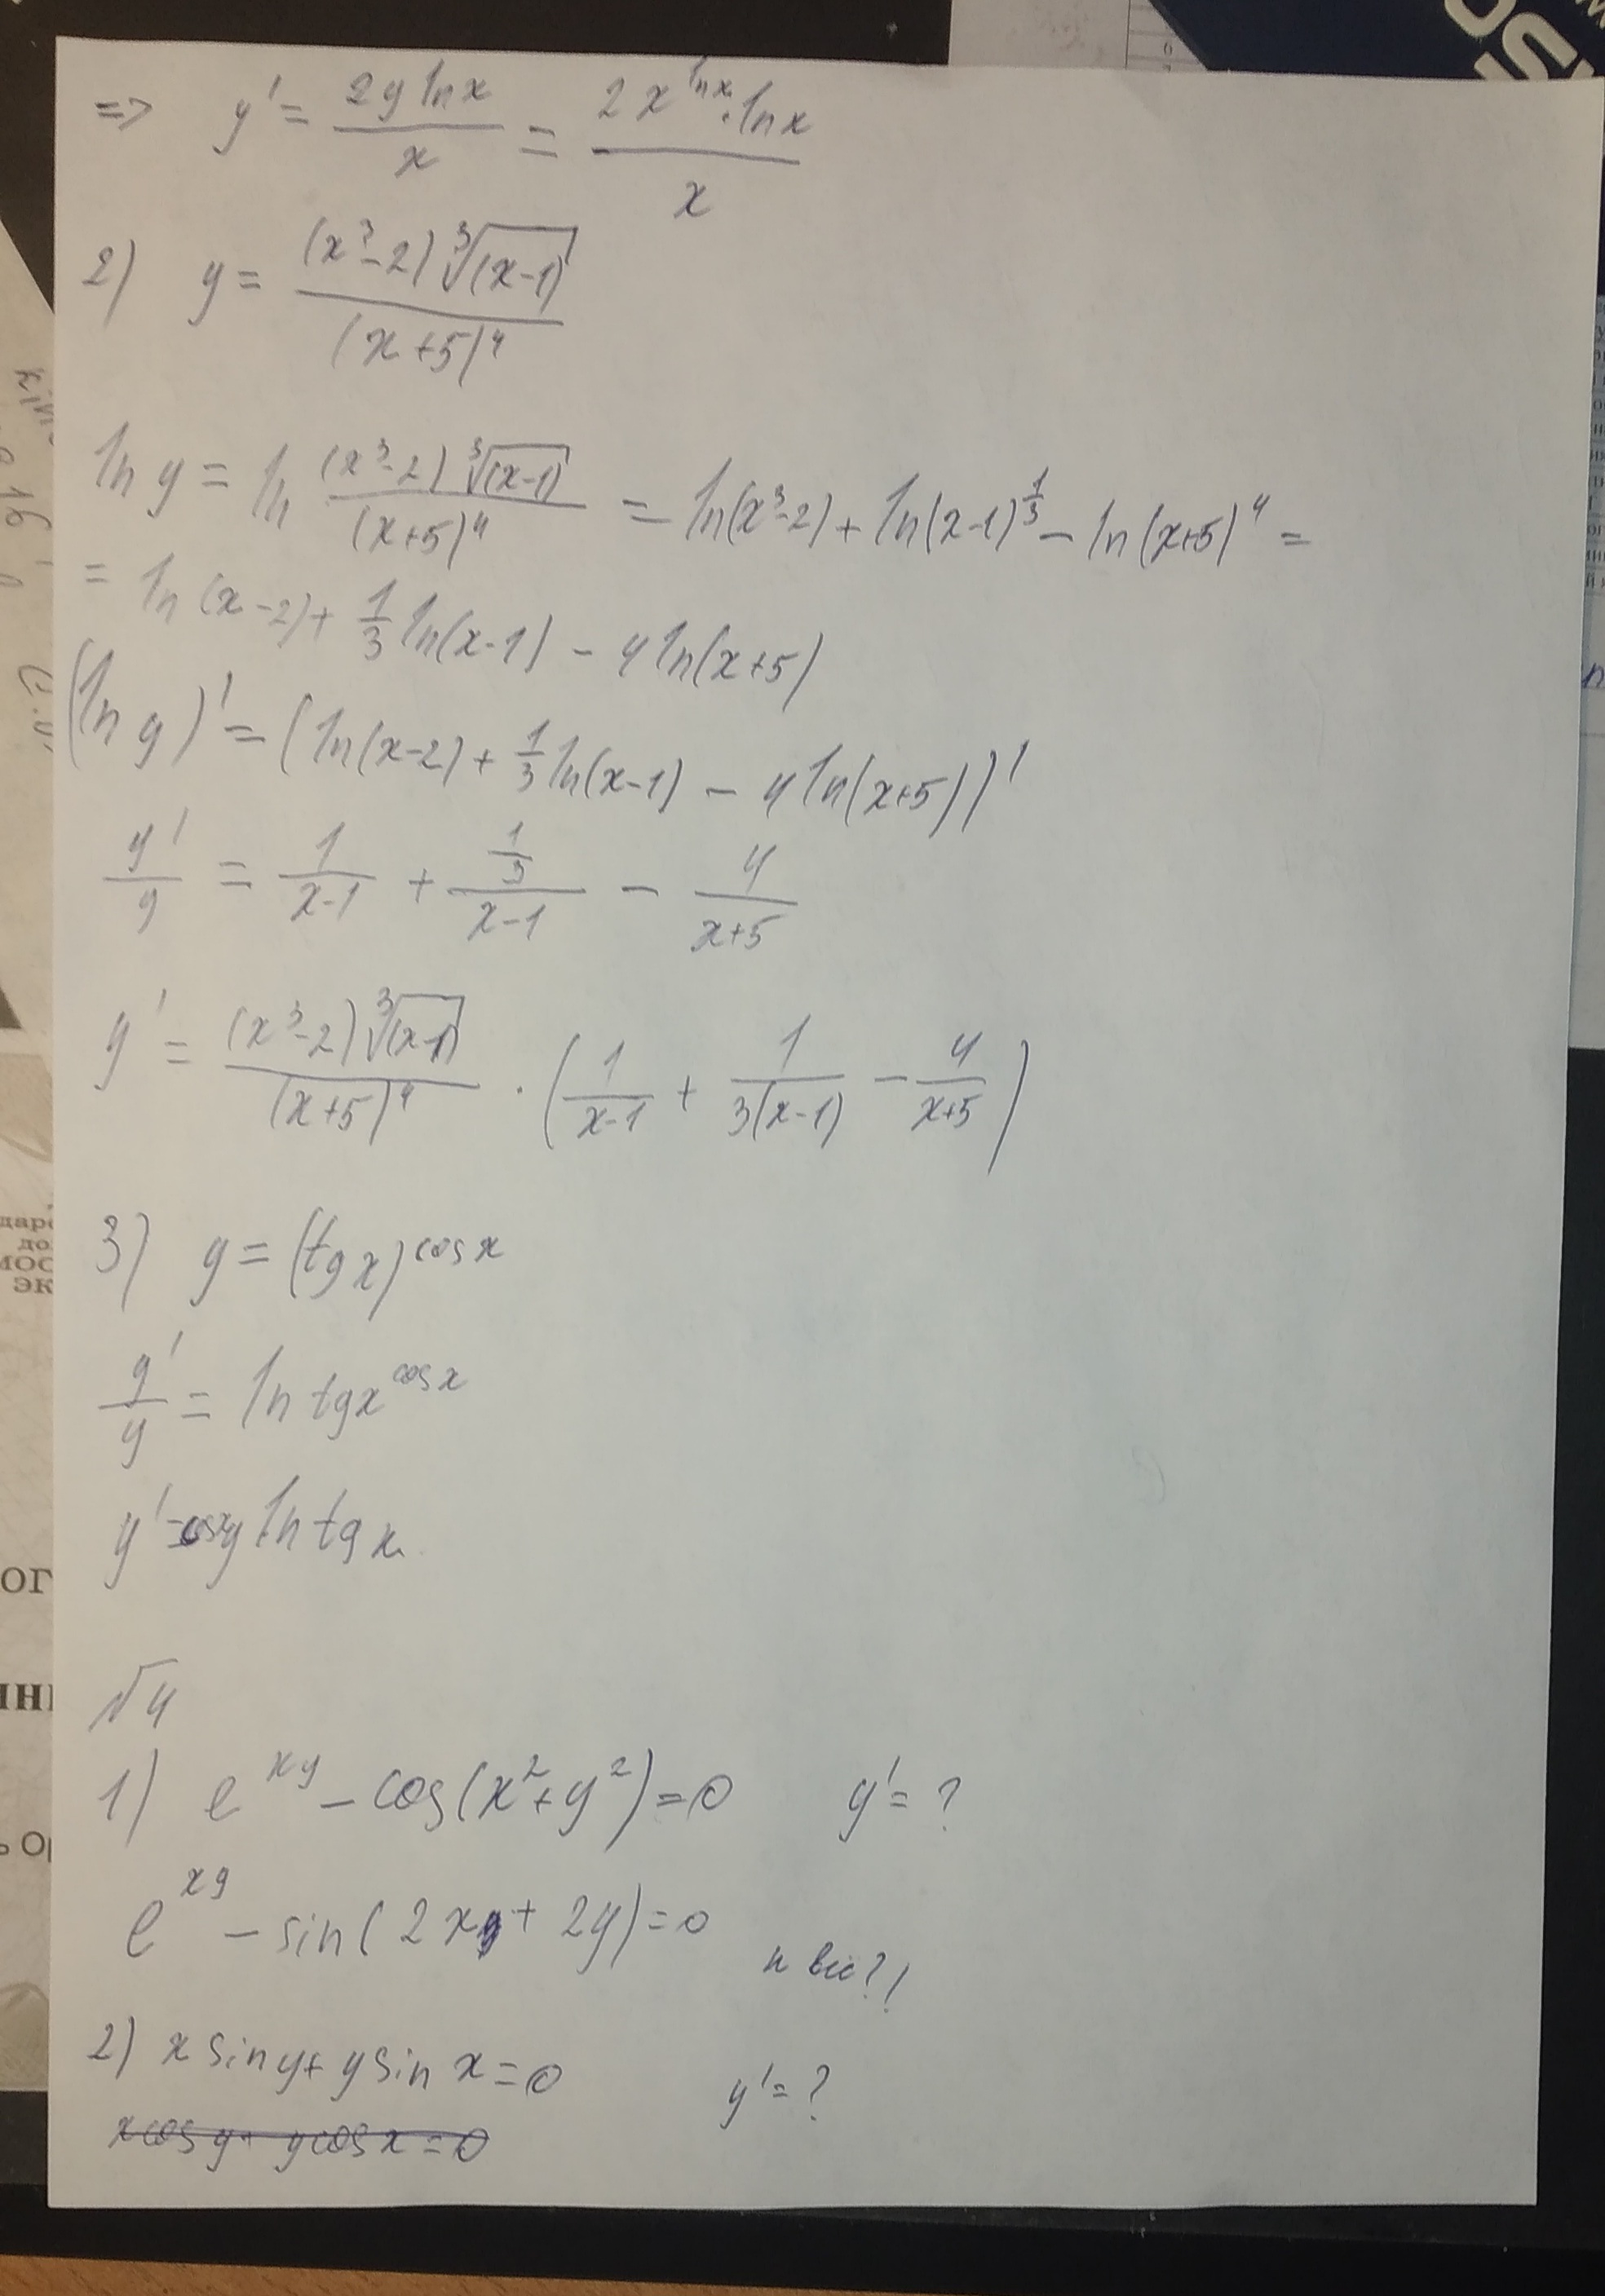 => y' = 2y ln x / x = 2x^(ln x) · ln x / x
2) y = (x³-2) ∛(x-1) / (x+5)⁴
ln y = ln (x³-2) ∛(x-1) / (x+5)⁴ = ln(x³-2) + ln(x-1)^(1/3) - ln(x+5)⁴ =
= ln(x-2) + 1/3 ln(x-1) - 4 ln(x+5)
(ln y)' = (ln(x-2) + 1/3 ln(x-1) - 4 ln(x+5))'
y'/y = 1/(x-1) + (1/3)/(x-1) - 4/(x+5)
y' = (x³-2) ∛(x-1) / (x+5)⁴ · (1/(x-1) + 1/(3(x-1)) - 4/(x+5))
3) y = (tg x)^(cos x)
y'/y = ln tgx^(cos x)
y' = cosx y ln tg x
№4
1) e^(xy) - cos(x²+y²) = 0 y' = ?
e^(xy) - sin(2x + 2y) = 0 и все?!
2) x sin y + y sin x = 0 y' = ?
x cos y + y cos x = 0
даро
до
МОС
ЭК
ог
инн
ь Ор